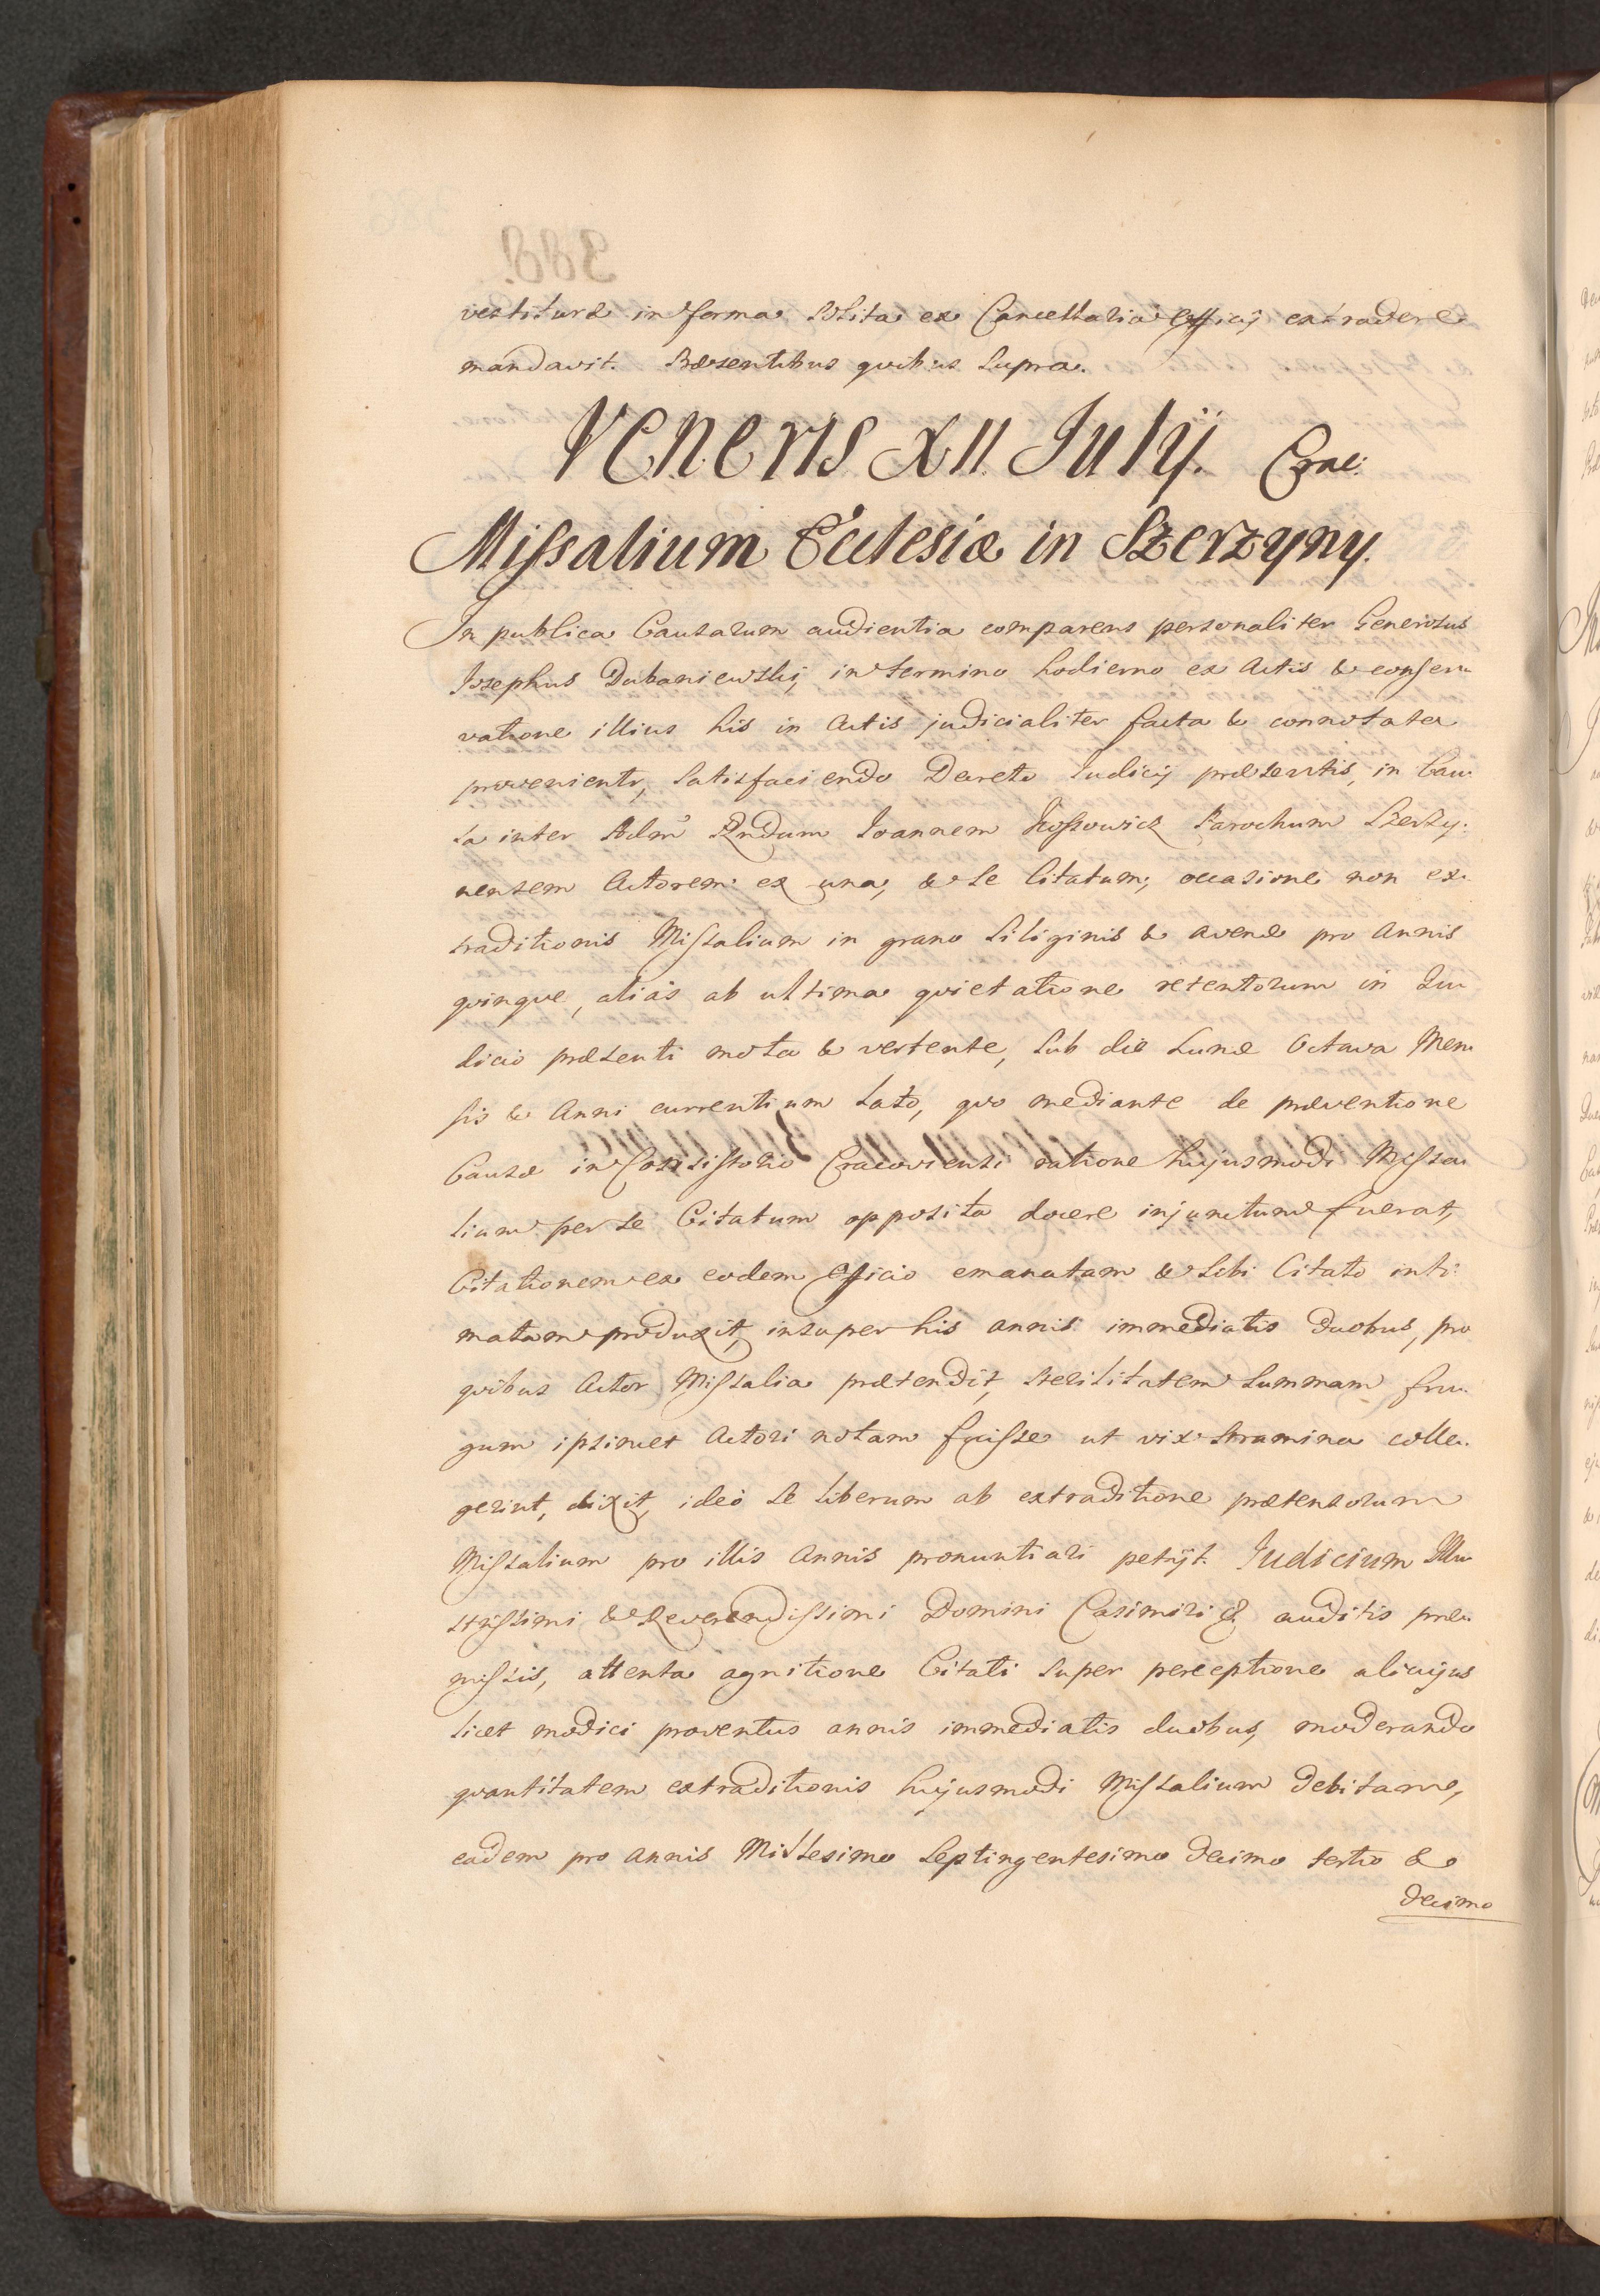 vestituræ in forma solita ex Cancellaria Officij extradere
mandavit. Præsentibus quibus supra.
Veneris XII. Julij. Crac:
Missalium Ecclesiæ in Szerzyny.
In publica Causarum audientia comparens personaliter Generosus
Josephus Dubaniewski, in termino hodierno ex Actis & conser
vatione illius his in Actis judicialiter facta & connotata
proveniente, satisfaciendo Decreto Judicij præsentis, in Cau
sa inter Adm Rndum Joannem Parochum Szerzy.
nensem Actorem ex una, & se Citatum, occasione non ex.
traditionis Missalium in grano siliginis & avenæ pro annis
quinque, alias ab ultima quietatione retentorum in Ju
dicio præsenti mota & vertente, sub die Lunæ Octava Men
sis & Anni currentium lato, quo mediante de præventione
Causæ in Consistorio Cracoviensi ratione hujusmodi Missa
lium per se Citatum opposita docere injunctum fuerat,
Citationem ex eodem Officio emanatam & sibi Citato inti
matam produxit, insuper his annis immediatis duobus, pro
quibus Actor Missalia prætendit, sterilitatem summam fru.
gum ipsimet Actori notam fuisse ut vix stramina colle.
gerint, dixit, ideo se liberum ab extraditione prætensorum
Missalium pro illis Annis pronuntiari petijt. Judicium Illu
strissimi & Reverendissimi Domini Casimiri & auditis præ.
missis, attenta agnitione Citati super perceptione alicujus
licet modici proventus annis immediatis duobus, moderando
quantitatem extraditionis hujusmodi Missalium debitam,
eadem pro annis Millesimo Septingentesimo decimo tertio &
decimo